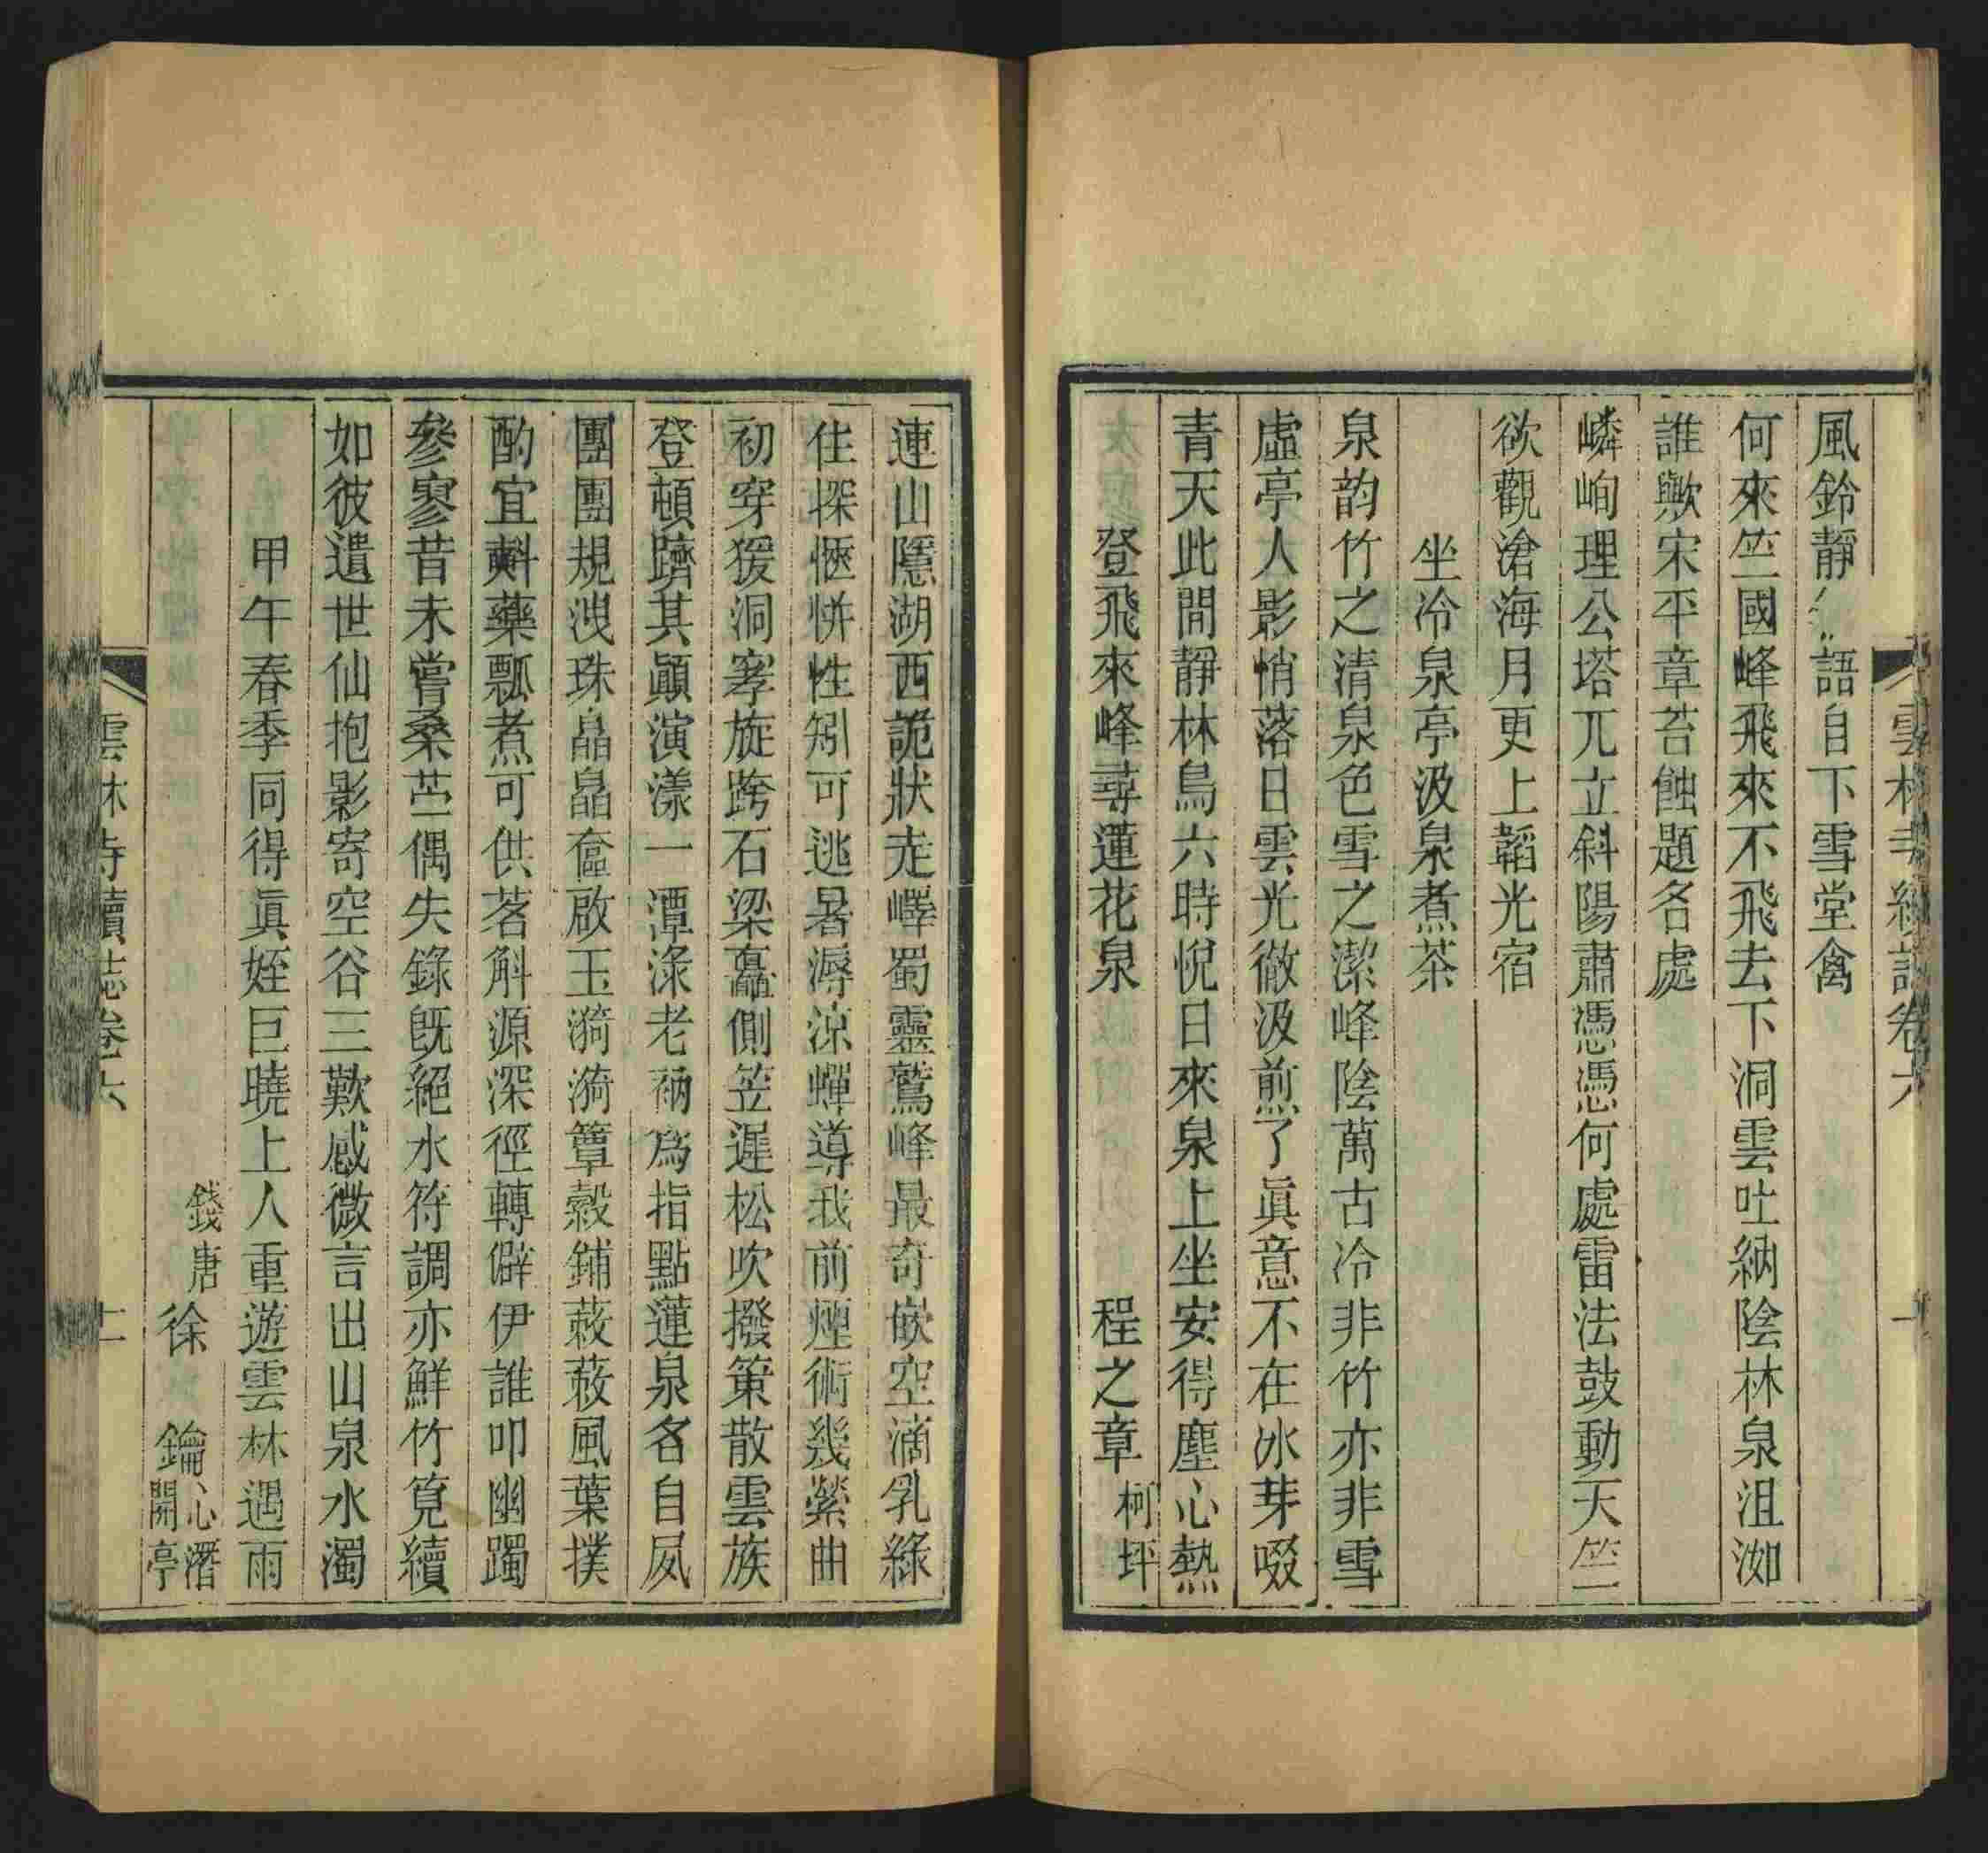 雲林寺續誌卷六
風鈴靜語自下雪堂禽
何來竺國峰飛來不飛去下洞雲吐納陰林泉沮洳
誰歟宋平章苔蝕題名處
嶙峋理公塔兀立斜陽肅憑憑何處雷法鼓動天竺
欲觀滄海月更上韜光宿
坐冷泉亭汲泉煮茶
泉韵竹之清泉色雪之潔峰陰萬古冷非竹亦非雪
虛亭人影悄落日雲光徹汲煎了眞意不在冰芽啜
青天此間靜林鳥六時悅日來泉上坐安得塵心熱
登飛來峰尋蓮花泉
程之章柯坪
連山隱湖西詭狀走嶧蜀靈鷲峰最奇嵌空滴乳綠
住探愜恲性矧可逃暑溽涼蟬導我前煙術幾縈曲
初穿猨洞窣旋跨石梁矗側笠遲松吹撥策散雲族
登頓躋其顚演漾一潭淥老衲爲指點蓮泉名自夙
團團規洩珠晶晶奩啟玉漪漪簟縠鋪蔌蔌風葉撲
酌宜㪺藥瓢煮可供茗斛源深徑轉僻伊誰叩幽躅
參寥昔未嘗桑苎偶失錄旣絕水符調亦鮮竹筧續
如彼遺世仙抱影寄空谷三歎感微言出山泉水濁
甲午春季同得眞姪巨曉上人重遊雲林遇雨
錢唐徐鑰心潛開亭
雲林寺續誌卷六